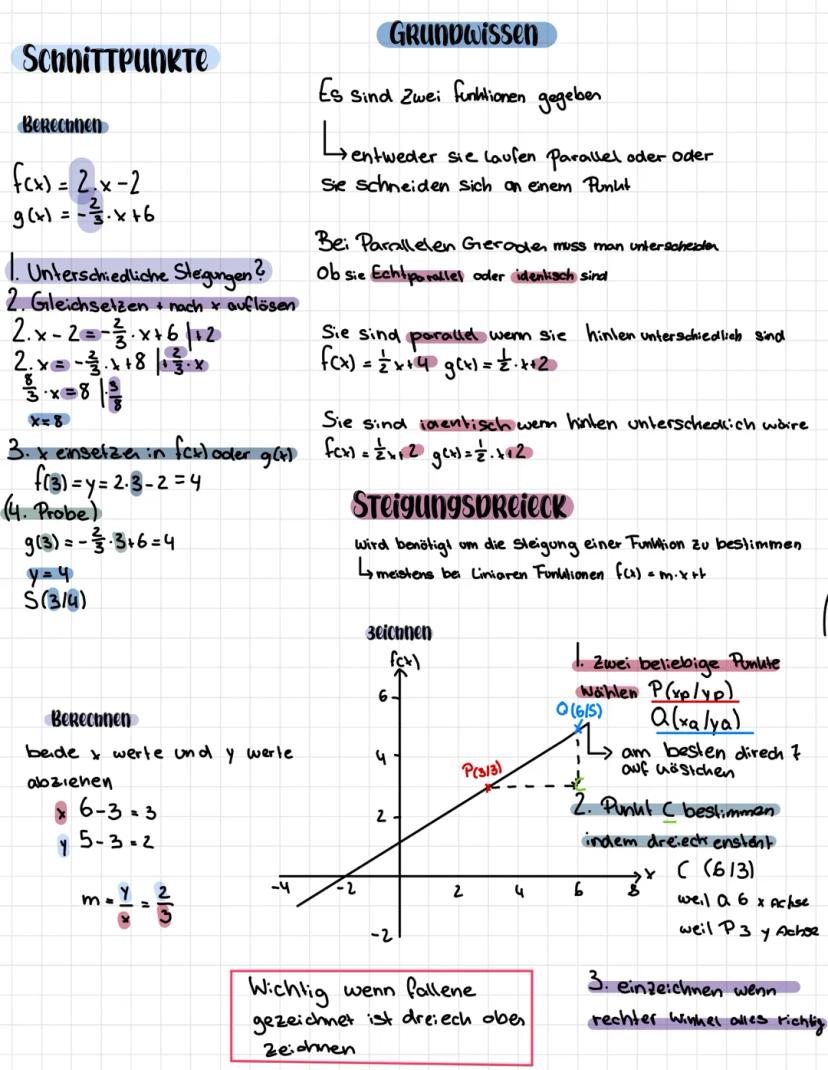 SCHNITTPUNKTE
BERECHNEN
f(x) = 2·x-2
g(x) = -2/3·x+6
1. Unterschiedliche Steigungen?
2. Gleichsetzen + nach x auflösen
2·x-2 = -2/3·x+6 |+2
2·x = -2/3·x+8 |+2/3·x
8/3·x = 8 |·3/8
x=8
3. x einsetzen in f(x) oder g(x)
f(3) = y = 2·3-2 = 4
(4. Probe)
g(3) = -2/3·3+6 = 4
y = 4
S(3/4)
GRUNDWISSEN
Es sind zwei funktionen gegeben
↳ entweder sie laufen Parallel oder oder
sie schneiden sich an einem Punkt
Bei Parallelen Gieraden muss man unterscheiden
Ob sie Echtparallel oder identisch sind
Sie sind parallel wenn sie hinten unterschiedlich sind
f(x) = 1/2x+4 g(x) = 1/2·x+2
Sie sind identisch wenn hinten unterschedlich wäire
f(x) = 1/2x+2 g(x) = 1/2·x+2
STEIGUNGSDREIECK
wird benötigt um die Steigung einer Funktion zu bestimmen
↳ meistens bei Liniaren Funktionen f(x) = m·x+t
BERECHNEN
beide x werte und y werte
abziehen
x 6-3=3
y 5-3=2
m = y/x = 2/3
ZEICHNEN
f(x)
6
4
2
-2
-4
-2
2
4
6
8
x
P(3/3)
Q(6/5)
C
1. Zwei beliebige Punkte
wählen P(xp/yp)
Q(xq/yq)
am besten direch 7
auf Kästchen
2. Punkt C bestimmen
indem dreieck ensteht
C (6/3)
weil Q 6 x Achse
weil P 3 y Achse
3. einzeichnen wenn
rechter Winkel alles richtig
Wichtig wenn fallene
gezeichnet ist dreiech oben
zeichnen